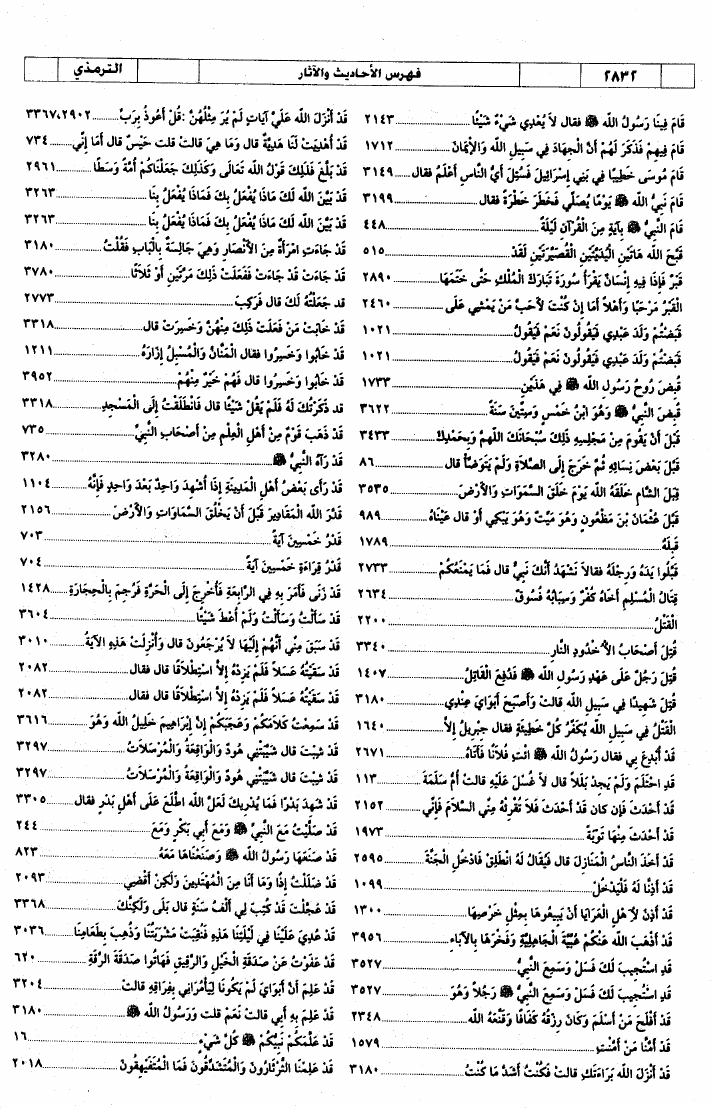 ٢٨٣٢
فهرس الأحاديث والآثار
الترمذي
قَامَ فِينَا رَسُولُ اللهِ ﷺ فقال لاَ يُعْدِي شَيْءٌ شَيْئًا ٢١٤٣
قَامَ فِيهِمْ فَذَكَرَ لَهُمْ أَنَّ الْجِهَادَ فِي سَبِيلِ اللهِ وَالإِيْمَانَ ١٧١٢
قَامَ مُوسَى خَطِيبًا فِي بَنِي إِسْرَائِيلَ فَسُئِلَ أَيُّ النَّاسِ أَعْلَمُ فقال ٣١٤٩
قَامَ نَبِيُّ اللهِ ﷺ يَوْمًا يُصَلِّي فَخَطَرَ خَطْرَةً فقال ٣١٩٩
قَامَ النَّبِيُّ ﷺ بِآيَةٍ مِنَ الْقُرْآنِ لَيْلَةً ٤٤٨
قَبَّحَ اللهُ هَاتَيْنِ الْيُدَيَّتَيْنِ الْقُصَيِّرَتَيْنِ لَقَدْ ٥١٥
قَبْرٌ فَإِذَا فِيهِ إِنْسَانٌ يَقْرَأُ سُورَةَ تَبَارَكَ الْمُلْكِ حَتَّى خَتَمَهَا ٢٨٩٠
الْقَبْرُ مَرْحَبًا وَأَهْلاً أَمَا إِنْ كُنْتَ لَأَحَبَّ مَنْ يَمْشِي عَلَى ٢٤٦٠
قَبَضْتُمْ وَلَدَ عَبْدِي فَيَقُولُونَ نَعَمْ فَيَقُولُ ١٠٢١
قَبَضْتُمْ وَلَدَ عَبْدِي فَيَقُولُونَ نَعَمْ فَيَقُولُ ١٠٢١
قُبِضَ رُوحُ رَسُولِ اللهِ ﷺ فِي هَذَيْنِ ١٧٣٣
قُبِضَ النَّبِيُّ ﷺ وَهُوَ ابْنُ خَمْسٍ وَسِتِّينَ سَنَةً ٣٦٢٢
قَبْلَ أَنْ يَقُومَ مِنْ مَجْلِسِهِ ذَلِكَ سُبْحَانَكَ اللهمَّ وَبِحَمْدِكَ ٣٤٣٣
قَبَّلَ بَعْضَ نِسَائِهِ ثُمَّ خَرَجَ إِلَى الصَّلاَةِ وَلَمْ يَتَوَضَّأْ قال ٨٦
قِبَلَ الشَّامِ خَلَقَهُ اللهُ يَوْمَ خَلَقَ السَّمَوَاتِ وَالأَرْضَ ٣٥٣٥
قَبَّلَ عُثْمَانَ بْنَ مَظْعُونٍ وَهُوَ مَيِّتٌ وَهُوَ يَبْكِي أَوْ قال عَيْنَاهُ ٩٨٩
قَبِلَهُ ١٧٨٩
قَبَّلُوا يَدَهُ وَرِجْلَهُ فقالاَ نَشْهَدُ أَنَّكَ نَبِيٌّ قال فَمَا يَمْنَعُكُمْ ٢٧٣٣
قِتَالُ الْمُسْلِمِ أَخَاهُ كُفْرٌ وَسِبَابُهُ فُسُوقٌ ٢٦٣٤
الْقَتْلُ ٢٢٠٠
قُتِلَ أَصْحَابُ الأُخْدُودِ النَّارِ ٣٣٤٠
قُتِلَ رَجُلٌ عَلَى عَهْدِ رَسُولِ اللهِ ﷺ فَدُفِعَ الْقَاتِلُ ١٤٠٧
قُتِلَ شَهِيدًا فِي سَبِيلِ اللهِ قالت وَأَصْبَحَ أَبَوَايَ عِنْدِي ٣١٨٠
الْقَتْلُ فِي سَبِيلِ اللهِ يُكَفِّرُ كُلَّ خَطِيئَةٍ فقال جِبْرِيلُ إِلاَّ ١٦٤٠
قَدْ أُبْدِعَ بِي فقال رَسُولُ اللهِ ﷺ ائْتِ فُلاَنًا فَأَتَاهُ ٢٦٧١
قَدِ احْتَلَمَ وَلَمْ يَجِدْ بَلَلاً قال لاَ غُسْلَ عَلَيْهِ قالت أُمُّ سَلَمَةَ ١١٣
قَدْ أَحْدَثَ فَإِنْ كان قَدْ أَحْدَثَ فَلاَ تُقْرِئْهُ مِنِّي السَّلاَمَ فَإِنِّي ٢١٥٢
قَدْ أَحْدَثَ مِنْهَا تَوْبَةً ١٩٧٣
قَدْ أَخَذَ النَّاسُ الْمَنَازِلَ قال فَيُقَالُ لَهُ انْطَلِقْ فَادْخُلِ الْجَنَّةَ ٢٥٩٥
قَدْ أَذِنَّا لَهُ فَلْيَدْخُلْ ١٠٩٩
قَدْ أَذِنَ لِأَهْلِ الْعَرَايَا أَنْ يَبِيعُوهَا بِمِثْلِ خَرْصِهَا ١٣٠٠
قَدْ أَذْهَبَ اللهُ عَنْكُمْ عُبِّيَّةَ الْجَاهِلِيَّةِ وَفَخْرَهَا بِالآبَاءِ ٣٩٥٦
قَدِ اسْتُجِيبَ لَكَ فَسَلْ وَسَمِعَ النَّبِيُّ ٣٥٢٧
قَدِ اسْتُجِيبَ لَكَ فَسَلْ وَسَمِعَ النَّبِيُّ ﷺ رَجُلاً وَهُوَ ٣٥٢٧
قَدْ أَفْلَحَ مَنْ أَسْلَمَ وَكَانَ رِزْقُهُ كَفَافًا وَقَنَّعَهُ اللهُ ٢٣٤٨
قَدْ أَمَّنَّا مَنْ أَمَّنْتِ ١٥٧٩
قَدْ أَنْزَلَ اللهُ بَرَاءَتَكِ قالت فَكُنْتُ أَشَدَّ مَا كُنْتُ ٣١٨٠
قَدْ أَنْزَلَ اللهُ عَلَيَّ آيَاتٍ لَمْ يُرَ مِثْلُهُنَّ :قُلْ أَعُوذُ بِرَبِّ ٣٣٦٧،٢٩٠٢
قَدْ أُهْدِيَتْ لَنَا هَدِيَّةٌ قال وَمَا هِيَ قالت قلت حَيْسٌ قال أَمَا إِنِّي ٧٣٤
قَدْ بَلَّغَ فَذَلِكَ قَوْلُ اللهِ تَعَالَى وَكَذَلِكَ جَعَلْنَاكُمْ أُمَّةً وَسَطًا ٢٩٦١
قَدْ بَيَّنَ اللهُ لَكَ مَاذَا يُفْعَلُ بِكَ فَمَاذَا يُفْعَلُ بِنَا ٣٢٦٣
قَدْ بَيَّنَ اللهُ لَكَ مَاذَا يُفْعَلُ بِكَ فَمَاذَا يُفْعَلُ بِنَا ٣٢٦٣
قَدْ جَاءَتِ امْرَأَةٌ مِنَ الأَنْصَارِ وَهِيَ جَالِسَةٌ بِالْبَابِ فَقُلْتُ ٣١٨٠
قَدْ جَاءَتْ قَدْ جَاءَتْ فَفَعَلَتْ ذَلِكَ مَرَّتَيْنِ أَوْ ثَلاَثًا ٣٧٨٠
قد جَعَلْتُهُ لَكَ قال فَرَكِبَ ٢٧٧٣
قَدْ خَابَتْ مَنْ فَعَلَتْ ذَلِكَ مِنْهُنَّ وَخَسِرَتْ قال ٣٣١٨
قَدْ خَابُوا وَخَسِرُوا فقال الْمَنَّانُ وَالْمُسْبِلُ إِزَارَهُ ١٢١١
قَدْ خَابُوا وَخَسِرُوا قال فَهُمْ خَيْرٌ مِنْهُمْ ٣٩٥٢
قد ذَكَرْتُكَ لَهُ فَلَمْ يَقُلْ شَيْئًا قال فَانْطَلَقْتُ إِلَى الْمَسْجِدِ ٣٣١٨
قَدْ ذَهَبَ قَوْمٌ مِنْ أَهْلِ الْعِلْمِ مِنْ أَصْحَابِ النَّبِيِّ ٧٣٥
قَدْ رَآهُ النَّبِيُّ ﷺ ٣٢٨٠
قَدْ رَأَى بَعْضُ أَهْلِ الْمَدِينَةِ إِذَا أُشْهِدَ وَاحِدٌ بَعْدَ وَاحِدٍ فَإِنَّهُ ١١٠٤
قَدَّرَ اللهُ الْمَقَادِيرَ قَبْلَ أَنْ يَخْلُقَ السَّمَاوَاتِ وَالأَرْضَ ٢١٥٦
قَدْرُ خَمْسِينَ آيَةً ٧٠٣
قَدْرُ قِرَاءَةِ خَمْسِينَ آيَةً ٧٠٤
قَدْ زَنَى فَأَمَرَ بِهِ فِي الرَّابِعَةِ فَأُخْرِجَ إِلَى الْحَرَّةِ فَرُجِمَ بِالْحِجَارَةِ ١٤٢٨
قَدْ سَأَلْتُ وَسَأَلْتُ وَلَمْ أُعْطَ شَيْئًا ٣٦٠٤
قَدْ سَبَقَ مِنِّي أَنَّهُمْ إِلَيْهَا لاَ يُرْجَعُونَ قال وَأُنْزِلَتْ هَذِهِ الآيَةُ ٣٠١٠
قَدْ سَقَيْتُهُ عَسَلاً فَلَمْ يَزِدْهُ إِلاَّ اسْتِطْلاَقًا قال فقال ٢٠٨٢
قَدْ سَقَيْتُهُ عَسَلاً فَلَمْ يَزِدْهُ إِلاَّ اسْتِطْلاَقًا قال فقال ٢٠٨٢
قَدْ سَمِعْتُ كَلاَمَكُمْ وَعَجَبَكُمْ إِنَّ إِبْرَاهِيمَ خَلِيلُ اللهِ وَهُوَ ٣٦١٦
قَدْ شِبْتَ قال شَيَّبَتْنِي هُودٌ وَالْوَاقِعَةُ وَالْمُرْسَلاَتُ ٣٢٩٧
قَدْ شِبْتَ قال شَيَّبَتْنِي هُودٌ وَالْوَاقِعَةُ وَالْمُرْسَلاَتُ ٣٢٩٧
قَدْ شَهِدَ بَدْرًا فَمَا يُدْرِيكَ لَعَلَّ اللهَ اطَّلَعَ عَلَى أَهْلِ بَدْرٍ فقال ٣٣٠٥
قَدْ صَلَّيْتُ مَعَ النَّبِيِّ ﷺ وَمَعَ أَبِي بَكْرٍ وَمَعَ ٢٤٤
قَدْ صَنَعَهَا رَسُولُ اللهِ ﷺ وَصَنَعْنَاهَا مَعَهُ ٨٢٣
قَدْ ضَلَلْتُ إِذًا وَمَا أَنَا مِنَ الْمُهْتَدِينَ وَلَكِنْ أَقْضِي ٢٠٩٣
قَدْ عَجِلْتَ قَدْ كُتِبَ لِي أَلْفُ سَنَةٍ قال بَلَى وَلَكِنَّكَ ٣٣٦٨
قَدْ عُدِيَ عَلَيْنَا فِي لَيْلَتِنَا هَذِهِ فَنُقِبَتْ مَشْرَبَتُنَا وَذُهِبَ بِطَعَامِنَا ٣٠٣٦
قَدْ عَفَوْتُ عَنْ صَدَقَةِ الْخَيْلِ وَالرَّقِيقِ فَهَاتُوا صَدَقَةَ الرِّقَةِ ٦٢٠
قَدْ عَلِمَ أَنَّ أَبَوَايَ لَمْ يَكُونَا لِيَأْمُرَانِي بِفِرَاقِهِ قالت ٣٢٠٤
قَدْ عَلِمَ بِهِ أَبِي قالت نَعَمْ قلت وَرَسُولُ اللهِ ﷺ ٣١٨٠
قَدْ عَلَّمَكُمْ نَبِيُّكُمْ ﷺ كُلَّ شَيْءٍ ١٦
قَدْ عَلِمْنَا الثَّرْثَارُونَ وَالْمُتَشَدِّقُونَ فَمَا الْمُتَفَيْهِقُونَ ٢٠١٨